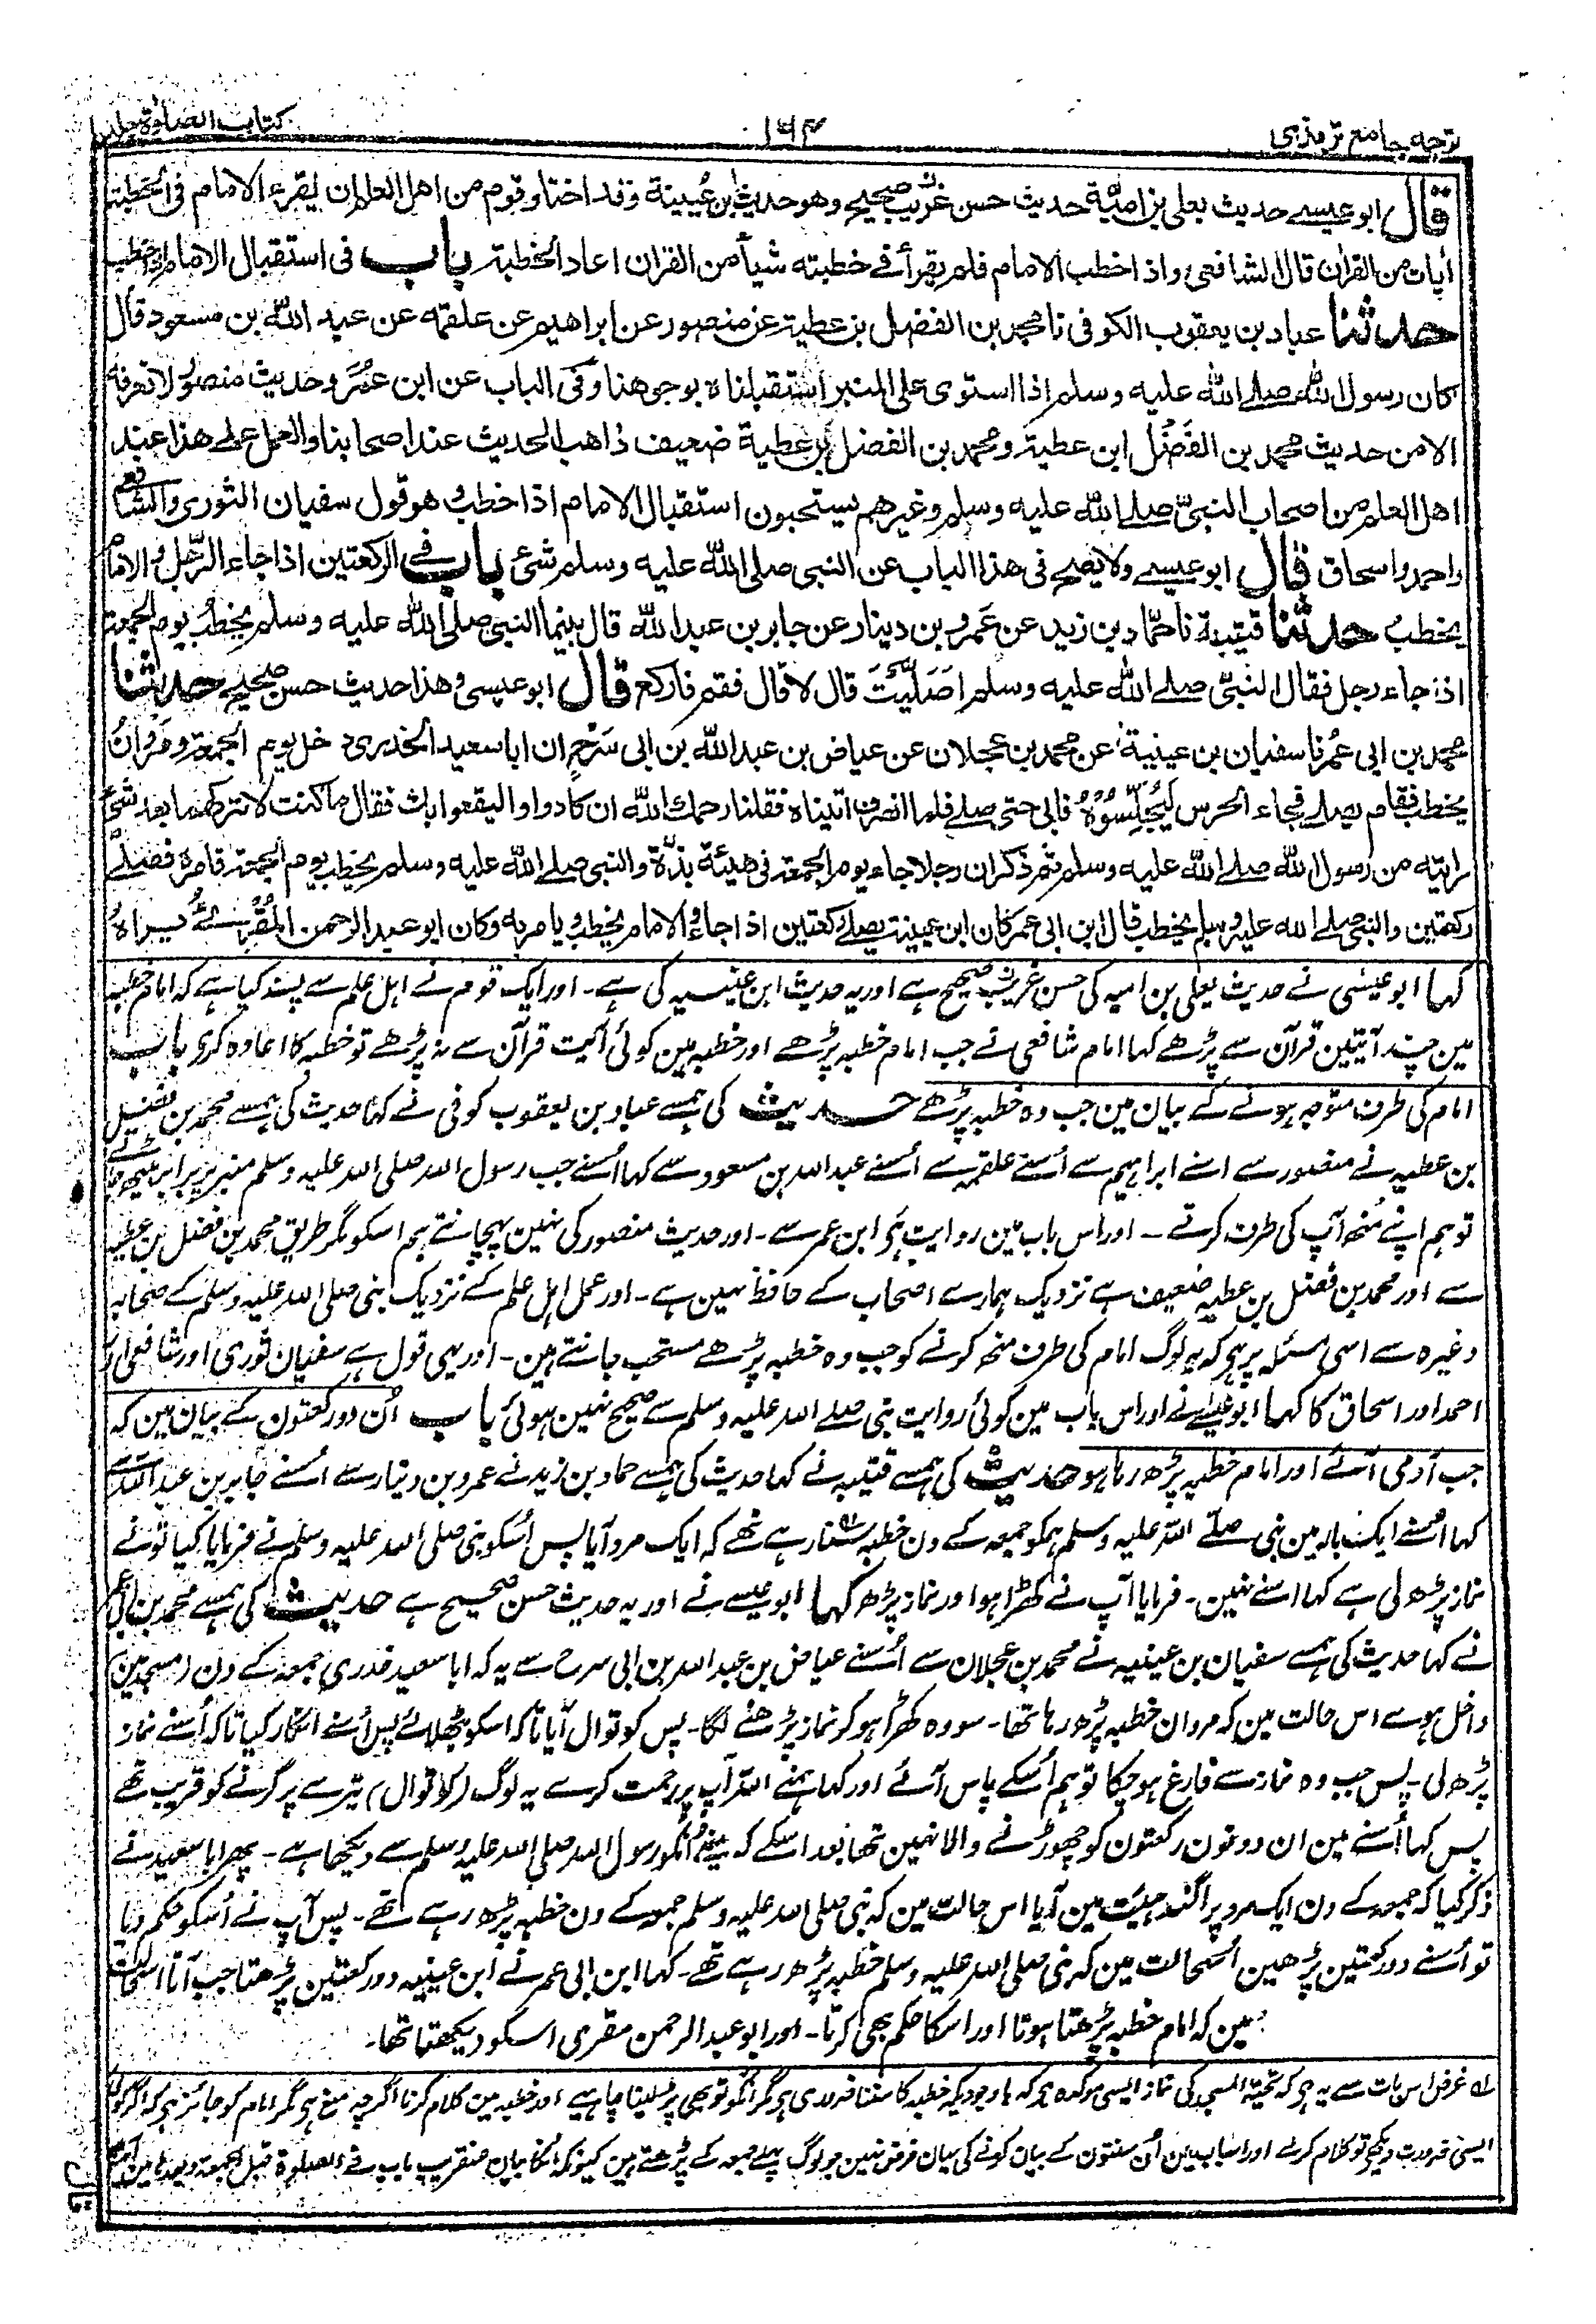 ترجمہ جامع ترمذی
۱۶۴
کتاب الصلوٰۃ جلد
قال ابو عیسے حدیث یعلی بن امیّة حدیث حسن غریب صحیح وھو حدیث ابن عُیینة وقد اختار قوم من اھل العلم ان یقرء الامام فی الخطبة
اٰیات من القراٰن قال الشافعی واذا خطب الامام فلم یقرأ فی خطبته شیأ من القراٰن اعاد الخطبة باب فی استقبال الامام اذا خطب
حدثنا عباد بن یعقوب الکوفی نا محمد بن الفضل بن عطیة عن منصور عن ابراھیم عن علقمة عن عبد اللّٰه بن مسعود قال
کان رسول اللّٰه صلے اللّٰه علیه وسلم اذا استوی علی المنبر استقبلناه بوجوھنا وفی الباب عن ابن عمر وحدیث منصور لا نعرفه
الا من حدیث محمد بن الفضل ابن عطیة ومحمد بن الفضل بن عطیة ضعیف ذاھب الحدیث عند اصحابنا والعمل علے ھذا عند
اھل العلم من اصحاب النبیّ صلے اللّٰه علیه وسلم وغیرھم یستحبون استقبال الامام اذا خطب وھو قول سفیان الثوری والشافعی
واحمد واسحاق قال ابو عیسے ولا یصح فی ھذا الباب عن النبی صلی اللّٰه علیه وسلم شیٔ باب فے الرکعتین اذا جاء الرَّجل والامام
یخطب حدثنا قتیبة نا حمّاد بن زید عن عَمرو بن دینار عن جابر بن عبد اللّٰه قال بینما النبی صلی اللّٰه علیه وسلم یخطب یوم الجمعة
اذ جاء رجل فقال النبیّ صلے اللّٰه علیه وسلم اَصَلَّیْتَ قال لا قال فقم فارکع قال ابو عیسی وھذا حدیث حسن صحیح حدثنا
محمد بن ابی عُمر نا سفیان بن عیینة عن محمد بن عجلان عن عیاض بن عبد اللّٰه بن ابی سَرْحٍ ان ابا سعید الخدری دخل یوم الجمعة ومَرْوانُ
یخطب فقام یصلے فجاء الحرس لِیُجْلِسُوْہُ فابی حتی صلے فلما انصرف اتیناه فقلنا رحمك اللّٰه ان کادوا لیقعوا بك فقال ما کنت لاترکھما بعد شیٔ
رایته من رسول اللّٰه صلے اللّٰه علیه وسلم ثم ذکر ان رجلا جاء یوم الجمعة فی ھیئة بذّة والنبی صلے اللّٰه علیه وسلم یخطب یوم الجمعة فامره فصلے
رکعتین والنبی صلے الله علیه وسلم یخطب قال ابن ابی عمر کان ابن عیینة یصلے رکعتین اذا جاء والامام یخطب ویامر به وکان ابو عبد الرحمن المُقْرِئُ یراہُ
کہا ابو عیسٰی نے حدیث یعلی بن امیہ کی حسن غریب صحیح ہے اور یہ حدیث ابن عیینہ کی ہے۔ اور ایک قوم نے اہل علم سے پسند کیا ہے کہ امام خطبہ
مین چند آیتین قرآن سے پڑھے کہا امام شافعی نے جب امام خطبہ پڑھے اور خطبہ مین کوئی آیت قرآن سے نہ پڑھے تو خطبہ کا اعادہ کری باب
امام کی طرف متوجہ ہونے کے بیان مین جب وہ خطبہ پڑھے حدیث کی ہمسے عباد بن یعقوب کوفی نے کہا حدیث کی ہمسے محمد بن فضل
بن عطیہ نے منصور سے اسنے ابراہیم سے اُسنے علقمہ سے اُسنے عبد اللہ بن مسعود سے کہا اُسنے جب رسول اللہ صلی اللہ علیہ وسلم منبر پر برابر بیٹھ جاتے
تو ہم اپنے مُنھ آپ کی طرف کرتے۔ اور اس باب مین روایت ہَی ابن عمر سے۔ اور حدیث منصور کی نہین پہچانتے ہم اسکو مگر طریق محمد بن فضل بن عطیہ
سے اور محمد بن فضل بن عطیہ ضعیف ہے نزدیک ہمارے اصحاب کے حافظ نہین ہے۔ اور عمل اہل علم کے نزدیک نبی صلی اللہ علیہ وسلم کے صحابہ
وغیرہ سے اسی مسئلہ پر ہی کہ یہ لوگ امام کی طرف منھ کرنے کو جب وہ خطبہ پڑھے مستحب جانتے ہین۔ اور یہی قول ہے سفیان ثوری اور شافعی اور
احمد اور اسحاق کا کہا ابو عیسٰے نے اور اس باب مین کوئی روایت نبی صلے اللہ علیہ وسلم سے صحیح نہین ہوئی باب اُن دو رکعتون کے بیان مین کہ
جب آدمی آئے اور امام خطبہ پڑھ رہا ہو حدیث کی ہمسے قتیبہ نے کہا حدیث کی ہمسے حماد بن زید نے عمرو بن دینار سے اُسنے جابر بن عبد اللہ سے
کہا اُسنے ایک بار مین نبی صلے اللہ علیہ وسلم ہمکو جمعہ کے دن خطبہ سنا رہے تھے کہ ایک مرد آیا پس اُسکو نبی صلی اللہ علیہ وسلم نے فرمایا کیا تو نے
نماز پڑھ لی ہے کہا اسنے نہین۔ فرمایا آپ نے کھڑا ہو اور نماز پڑھ کہا ابو عیسے نے اور یہ حدیث حسن صحیح ہے حدیث کی ہمسے محمد بن ابی عمر
نے کہا حدیث کی ہمسے سفیان بن عیینہ نے محمد بن عجلان سے اُسنے عیاض بن عبد اللہ بن ابی سرح سے یہ کہ ابا سعید خدری جمعہ کے دن (مسجد مین)
داخل ہوے اس حالت مین کہ مروان خطبہ پڑھ رہا تھا۔ سو وہ کھڑا ہو کو نماز پڑھنے لگا۔ پس کوتوال آیا تا کہ اسکو بٹھلائے پس اُسنے انکار کیا تا کہ اُسنے نماز
پڑھ لی۔ پس جب وہ نماز سے فارغ ہو چکا تو ہم اُسکے پاس آئے اور کہا ہمنے اللہ آپ پر رحمت کرے یہ لوگ (کوتوال) تیرے پر گرنے کو قریب تھے
پس کہا اُسنے مین ان دونون رکعتون کو چھوڑنے والا نہین تھا بعد اسکے کہ مینے انکو رسول اللہ صلی اللہ علیہ وسلم سے دیکھا ہے۔ پھر ابا سعید نے
ذکر کیا کہ جمعہ کے دن ایک مرد پراگندہ ہیئت مین آیا اس حالت مین کہ نبی صلی اللہ علیہ وسلم جمعہ کے دن خطبہ پڑھ رہے تھے۔ پس آپ نے اُسکو حکم دیا
تو اُسنے دو رکعتین پڑھین اُسحالت مین کہ نبی صلی اللہ علیہ وسلم خطبہ پڑھ رہے تھے۔ کہا ابن ابی عمر نے ابن عیینہ دو رکعتین پڑھتا جب آتا اسحالت
مین کہ امام خطبہ پڑھتا ہوتا اور اسکا حکم بھی کرتا۔ اور ابو عبد الرحمن مقری اسکو دیکھتا تھا۔
لہ غرض اس بات سے یہ ہی کہ تحیۃ المسجد کی نماز ایسی موکدہ ہی کہ باوجودیکہ خطبہ کا سننا ضروری ہی مگر انکو تو بھی پڑلینا چاہیے اور خطبہ مین کلام کرنا اگرچہ منع ہی مگر امام کو جائز ہی کہ اگر کوئی
ایسی ضرورت دیکھے تو کلام کرلے اور اس باب مین اُن سنتون کے بیان کرنے کی بیان غرض نہین جو لوگ پہلے جمعہ کے پڑھتے ہین کیونکہ انکا بیان عنقریب باب فے الصلوۃ قبل الجمعۃ وبعدہا مین آئیگا
قال